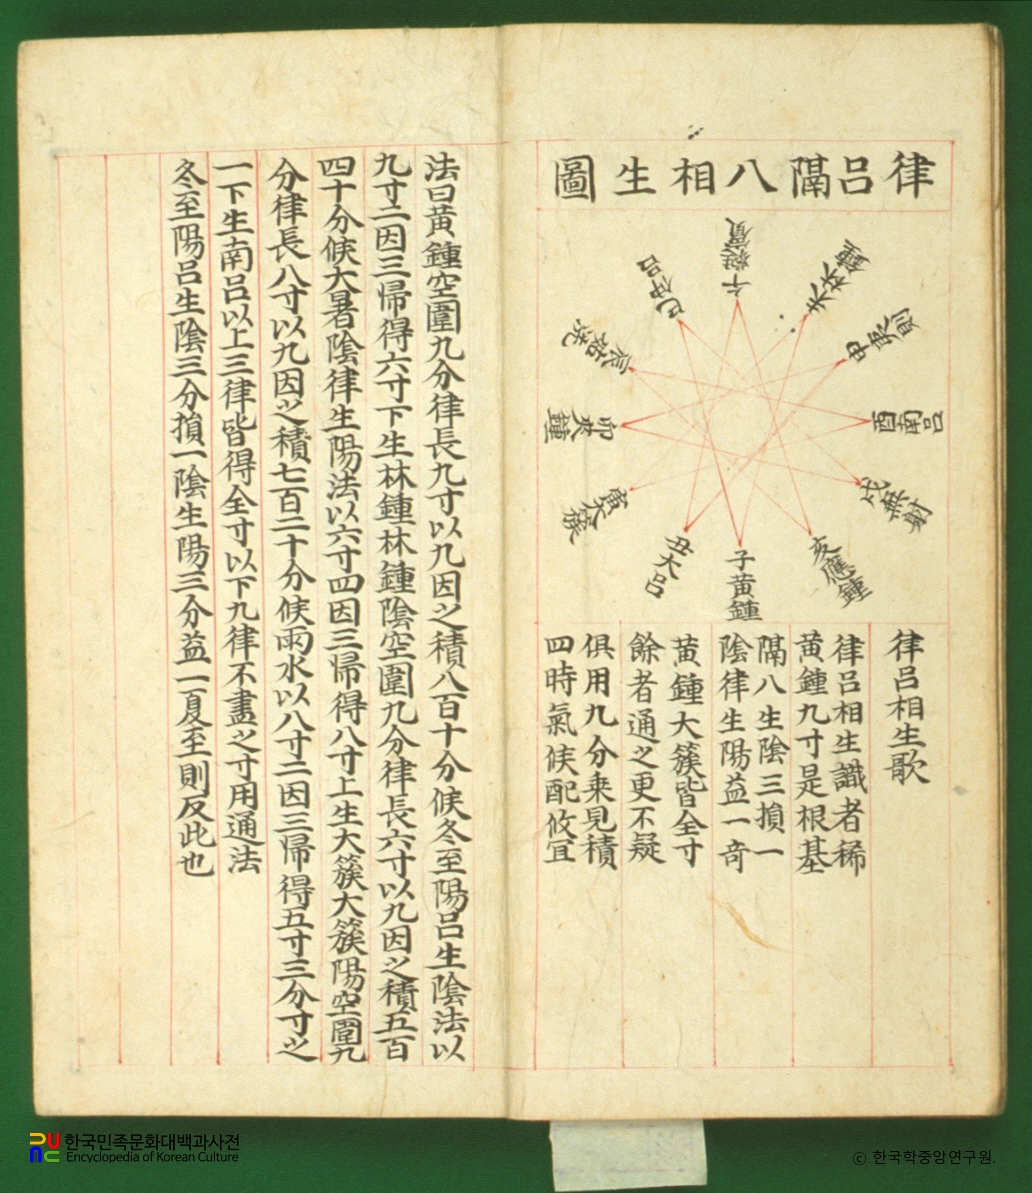 律呂隔八相生圖
子黃鍾
丑大呂
寅大簇
卯夾鍾
辰姑洗
巳仲呂
午蕤賓
未林鍾
申夷則
酉南呂
戌無射
亥應鍾
律呂相生歌
律呂相生識者稀
黃鍾九寸是根基
隔八生陰三損一
陰律生陽益一奇
黃鍾大簇皆全寸
餘者通之更不疑
俱用九分乗見積
四時氣候配攸冝
法曰黃鍾空圍九分律長九寸以九因之積八百十分候冬至陽呂生陰法以
九寸二因三帰得六寸下生林鍾林鍾陰空圍九分律長六寸以九因之積五百
四十分候大暑陰律生陽法以六寸四因三帰得八寸上生大簇大簇陽空圍九
分律長八寸以九因之積七百二十分候雨水以八寸二因三帰得五寸三分寸之
一下生南呂以上三律皆得全寸以下九律不盡之寸用通法
冬至陽呂生陰三分損一陰生陽三分益一夏至則反此也
한국민족문화대백과사전
Encyclopedia of Korean Culture
ⓒ 한국학중앙연구원.